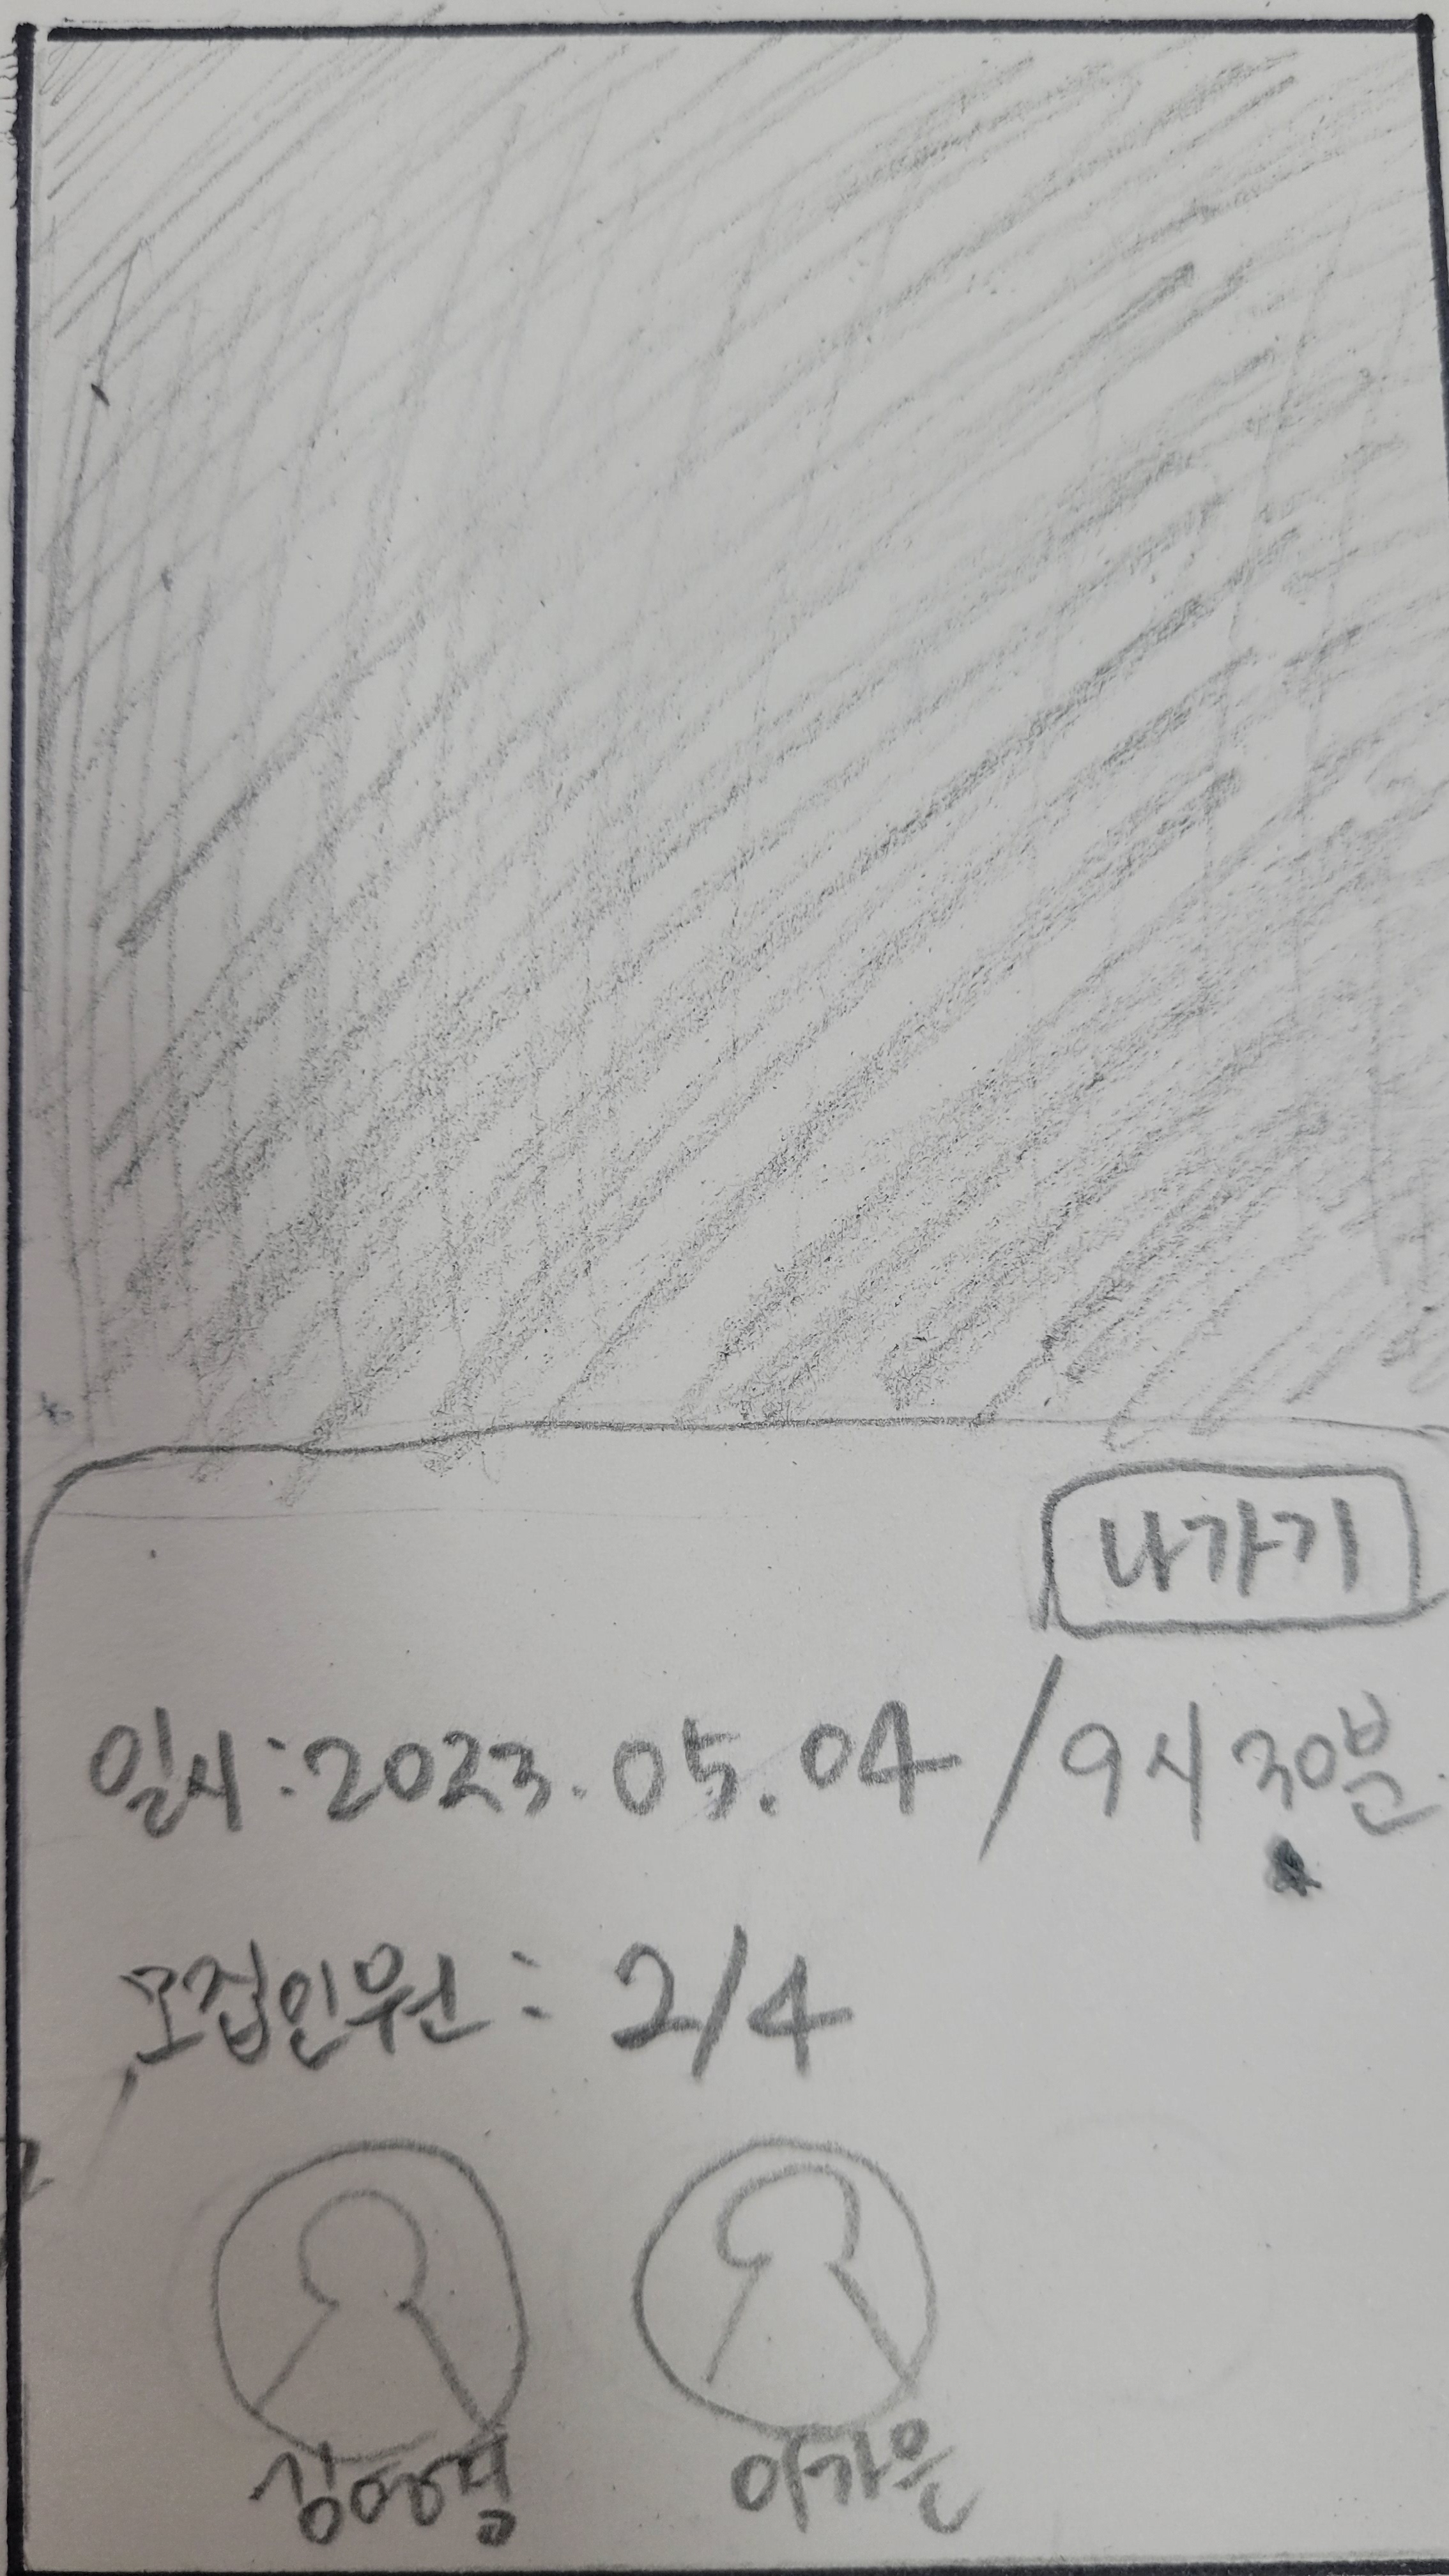 나가기
일시:2023.05.04 / 9시 30분.
모집인원: 2/4
이가은